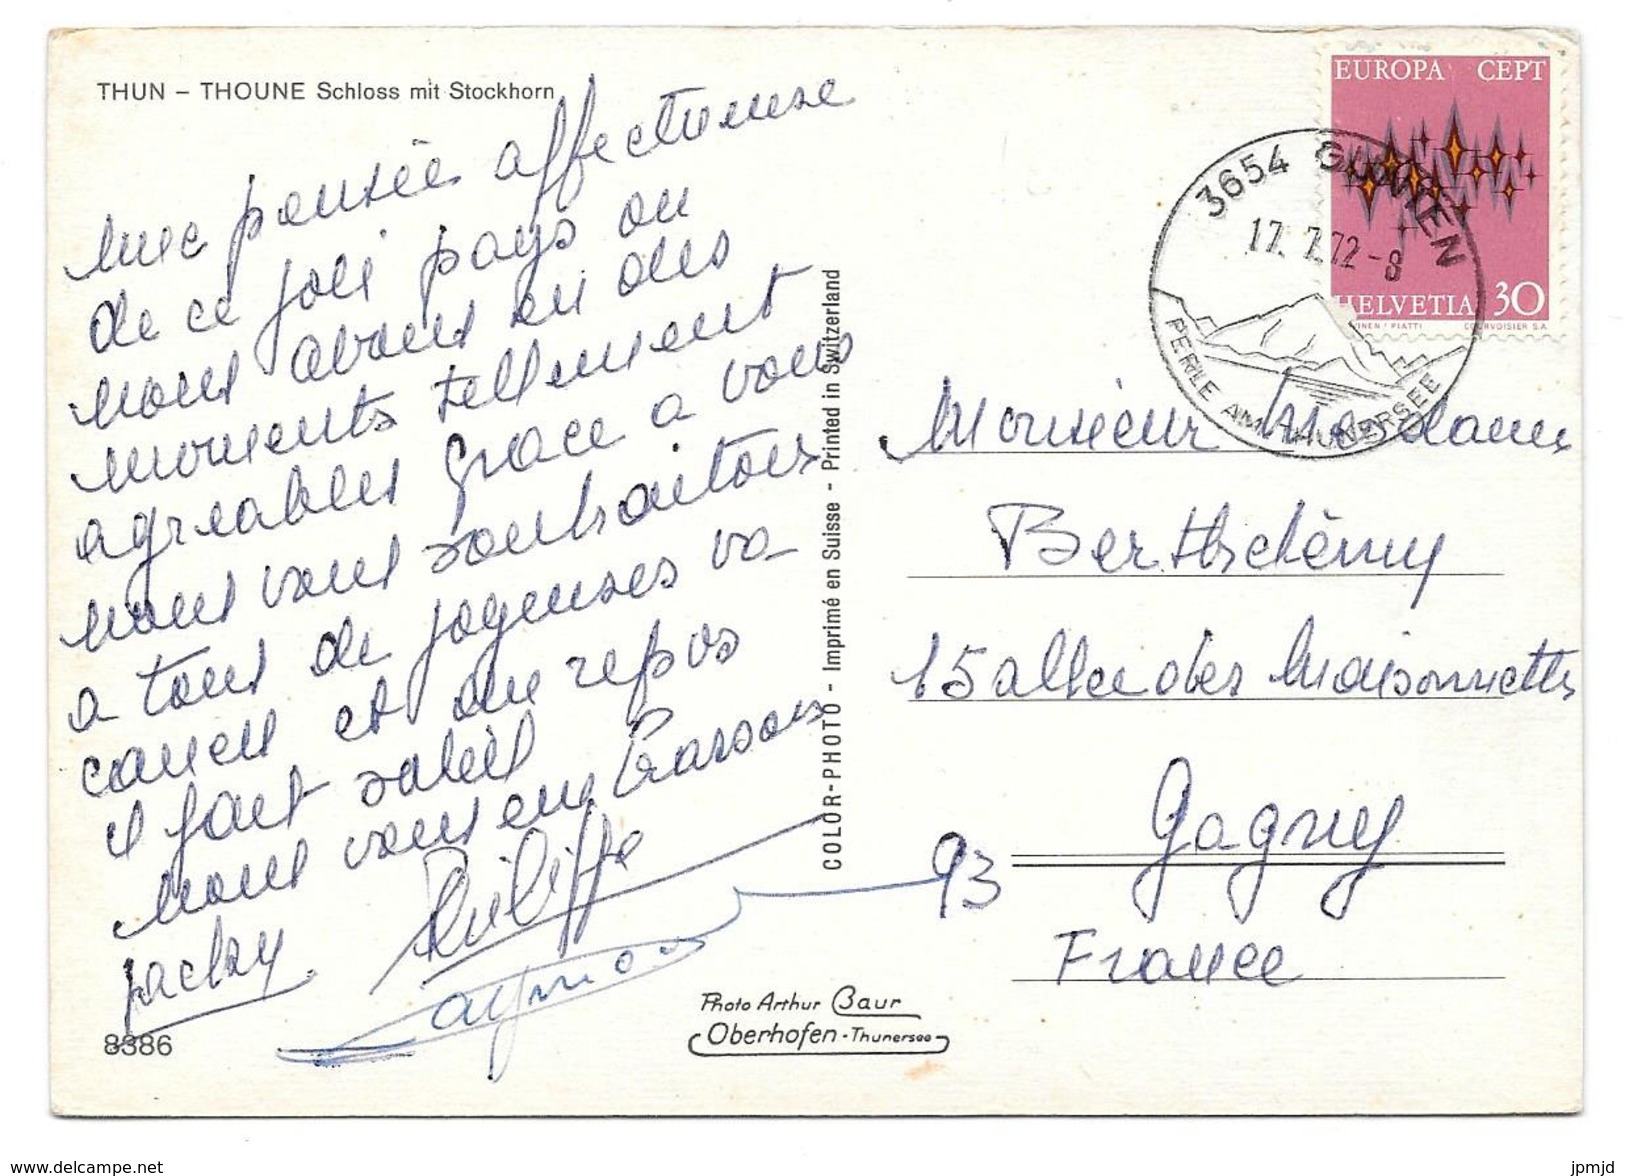 THUN – THOUNE Schloss mit Stockhorn
Avec pensée affectueuse
de ce joli pays ou
nous avons eu des
moments tellement
agreables grace a vous
nous vous souhaitons
a tous de joyeuses va-
cances et du repos
il fait soleil
nous vous embrassons
jacky
Philippe
8386
COLOR-PHOTO - Imprimé en Suisse - Printed in Switzerland
Photo Arthur Baur
Oberhofen - Thunersee
EUROPA CEPT
HELVETIA 30
COURVOISIER S.A.
3654 GUNTEN
17. 7.72 -8
PERLE AM THUNERSEE
Monsieur Madame
Berthelémy
15 allee des Maisonnettes
Gagny
93
France
www.delcampe.net
jpmjd